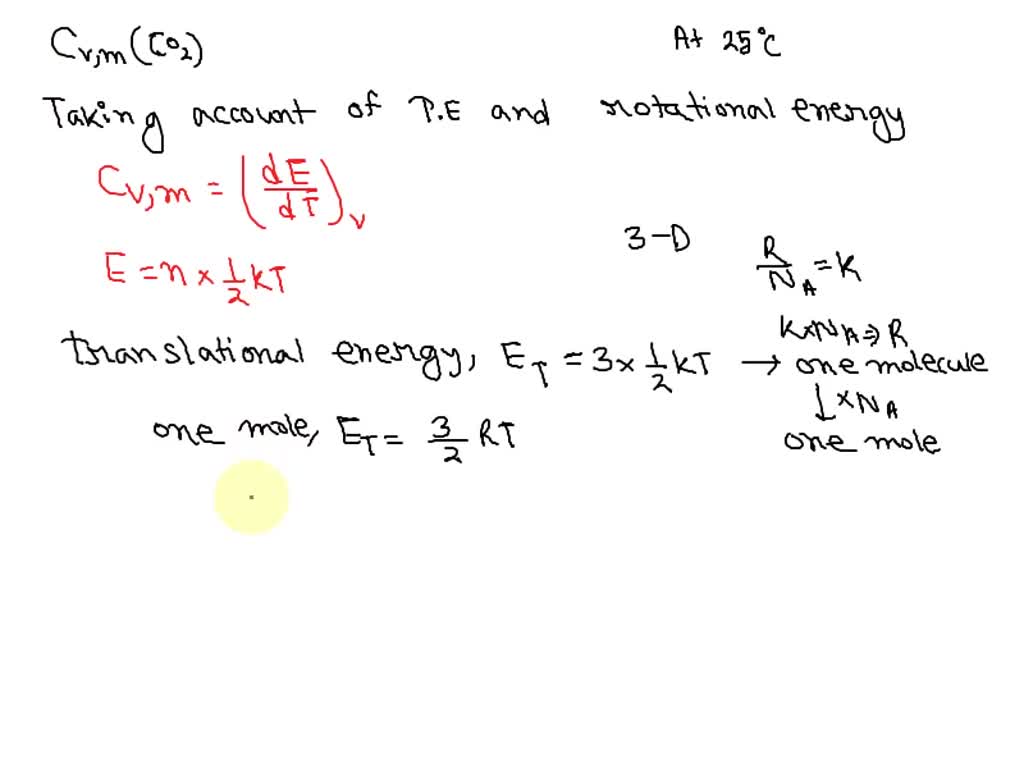 Cv,m (CO2)
At 25°C
Taking account of P.E and rotational energy
Cv,m = (dE/dT)v
E = n × 1/2 kT
3-D
R/NA = K
translational energy, ET = 3 × 1/2 kT → one molecule
K×NA ⇒ R
↓ ×NA
one mole
one mole, ET = 3/2 RT